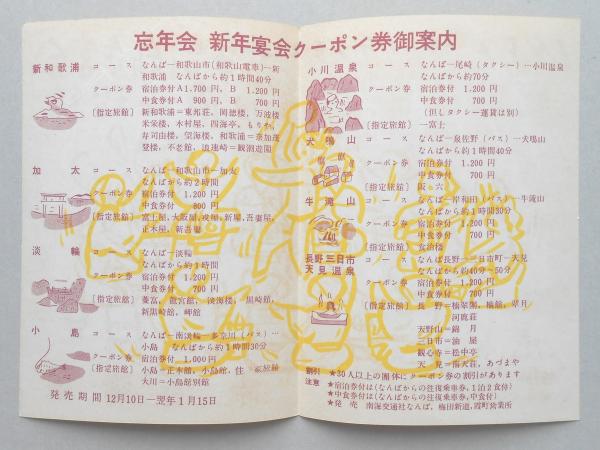 忘年会 新年宴会クーポン券御案内
新和歌浦
コース なんば―和歌山市(和歌山電車)―新
和歌浦 なんばから約1時間40分
クーポン券 宿泊券付A1.700円、B 1.200円
中食券付A 900円、B 700円
[指定旅館] 新和歌浦=東邦荘、岡徳楼、万波楼
米栄楼、木村屋、四海亭、もりや、
寿司由楼、望海楼、和歌浦=
登楼、不老館、浪速崎=観潮遊園
加太
コース なんば―和歌山市―加太
なんばから約2時間
クーポン券 宿泊券付 1.200円
中食券付 800円
[指定旅館] 富士屋、大阪屋、戎屋、新屋、吾妻屋、
正木屋、新吾妻
淡輪
コース なんば―淡輪
なんばから約1時間
クーポン券 宿泊券付 1.200円
中食券付 700円
[指定旅館] 龍宮館、淡海楼、黒崎館、
新黒崎館、岬館
小島
コース なんば―南淡輪―多奈川(バス)…
小島 なんばから約1時間30分
クーポン券 宿泊券付 1.000円
[指定旅館] 小島=正木館、小島館、住の家旅館
大川=小島館別館
発売期間 12月10日―翌年1月15日
小川温泉
コース なんば―尾崎(タクシー)…小川温泉
なんばから約70分
クーポン券 宿泊券付 1.200円
中食券付 700円
(但しタクシー運賃は別)
[指定旅館] 一富士
犬鳴山
コース なんば―泉佐野(バス)…犬鳴山
なんばから約1時間40分
クーポン券 宿泊券付 1.200円
中食券付 700円
[指定旅館]
牛滝山
コース なんば―岸和田(バス)…牛滝山
なんばから約1時間30分
クーポン券 宿泊券付 1.200円
中食券付 700円
[指定旅館]
長野 三日市
天見温泉
コース なんば長野―三日市町―天見
なんばから約40分~50分
クーポン券 宿泊券付 1.200円
中食券付 700円
[指定旅館] 長野=極楽閣、楠館、翠月
河鹿荘
天野山=錦月
三日市=油屋
観心寺=松中亭
天見=南天荘、あづまや
割引
注意
★30人以上の團体にクーポン券の割引があります
★宿泊券付は(なんばからの往復乗車券、1泊2食付)
★中食券付は(なんばからの往復乗車券、中食付)
★発売 南海交通社なんば、梅田新道、霞町営業所